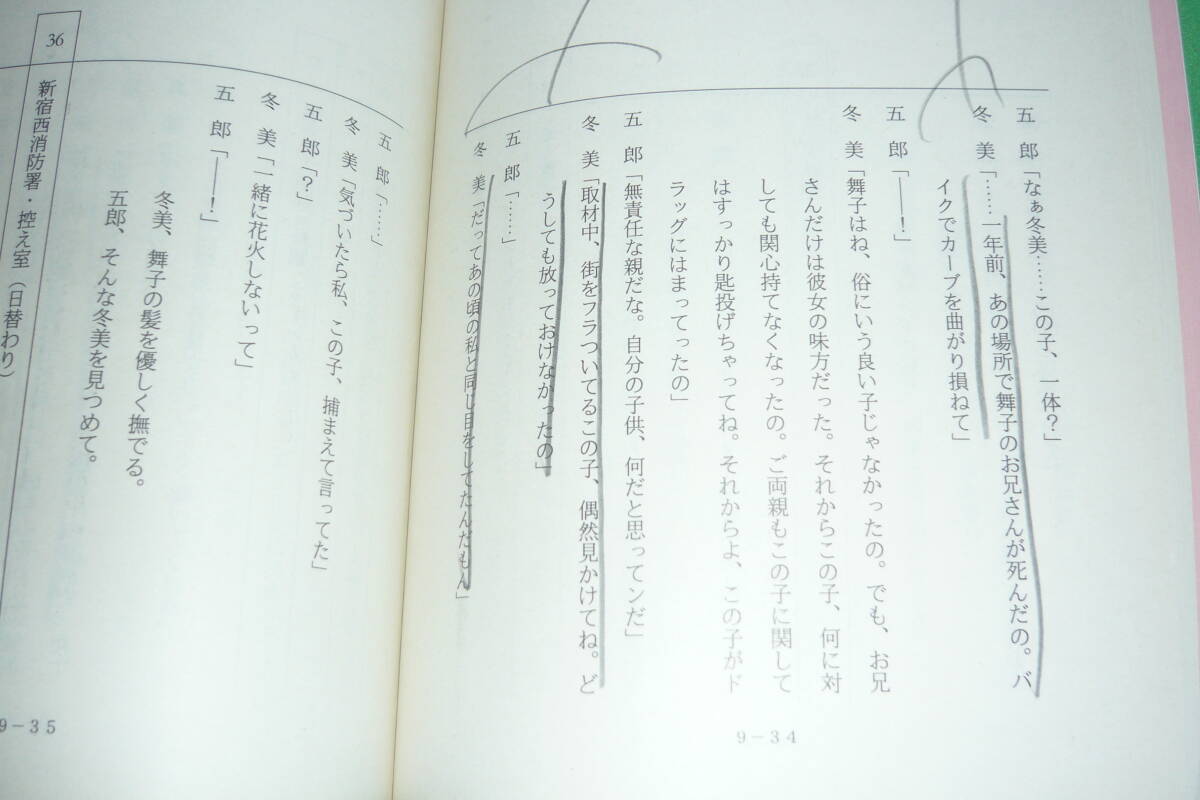 五　郎「なぁ冬美……この子、一体？」
冬　美「……一年前、あの場所で舞子のお兄さんが死んだの。バ
イクでカーブを曲がり損ねて」
五　郎「――！」
冬　美「舞子はね、俗にいう良い子じゃなかったの。でも、お兄
さんだけは彼女の味方だった。それからこの子、何に対
しても関心持てなくなったの。ご両親もこの子に関して
はすっかり匙投げちゃってね。それからよ、この子がド
ラッグにはまってったの」
五　郎「無責任な親だな。自分の子供、何だと思ってンだ」
冬　美「取材中、街をフラついてるこの子、偶然見かけてね。ど
うしても放っておけなかったの」
五　郎「……」
冬　美「だってあの頃の私と同じ目をしてたんだもん」
9－34
五　郎「……」
冬　美「気づいたら私、この子、捕まえて言ってた」
五　郎「？」
冬　美「一緒に花火しないって」
五　郎「――！」
冬美、舞子の髪を優しく撫でる。
五郎、そんな冬美を見つめて。
36
新宿西消防署・控え室（日替わり）
9－35